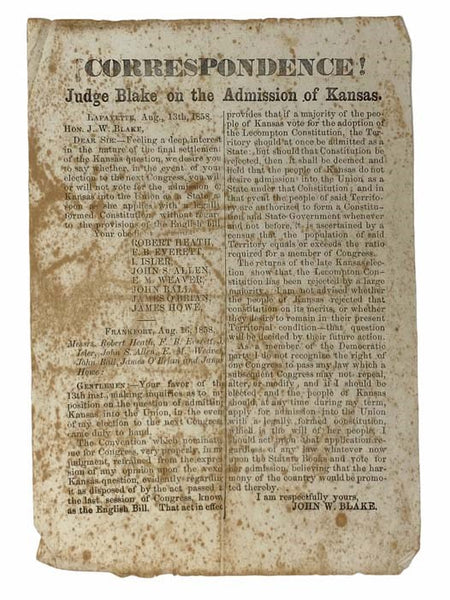 ¡CORRESPONDENCE!
Judge Blake on the Admission of Kansas.
LAFAYETTE, Aug., 13th, 1858.
HON. J. W. BLAKE,
DEAR SIR:—Feeling a deep interest
in the nature of the final settlement
of the Kansas question, we desire you
to say whether, in the event of your
election to the next Congress, you will
or will not vote for the admission of
Kansas into the Union as a State, as
soon as she applies with a legally
formed Constitution, without regard
to the provisions of the English Bill.
Your obe
ROBERT HEATH,
F. B. EVERETT,
J. ISLER,
JOHN S. ALLEN,
E. M. WEAVER,
JOHN BALL,
JAMES O'BRIAN,
JAMES HOWE.
FRANKFORT, Aug. 16, 1858.
Messrs. Robert Heath, F. B. Everett, J.
Isler, John S. Allen, E. M. Weaver,
John Ball, James O'Brian and James
Howe:
GENTLEMEN:—Your favor of the
13th inst., making inquiries as to my
position on the question of admitting
Kansas into the Union, in the event
of my election to the next Congress
came duly to hand.
The Convention which nominated
me for Congress, very properly, in my
judgment, refrained from the expres
sion of any opinion on the vexed
Kansas question, evidently regarding
it as disposed of by the act passed at
the last session of Congress, known
as the English Bill. That act in effect
provides that if a majority of the peo-
ple of Kansas vote for the adoption of
the Lecompton Constitution, the Ter-
ritory should at once be admitted as a
State; but should that Constitution be
rejected, then it shall be deemed and
held that the people of Kansas do not
desire admission into the Union as a
State under that Constitution; and in
that event the people of said Territo-
ry are authorized to form a Constitu-
tion and State Government whenever
and not before, it is ascertained by a
census that the population of said
Territory equals or exceeds the ratio
required for a member of Congress.
The returns of the late Kansas elec-
tion show that the Lecompton Con-
stitution has been rejected by a large
majority. I am not advised whether
the people of Kansas rejected that
constitution on its merits, or whether
they desire to remain in their present
Territorial condition—that question
will be decided by their future action.
As a member of the Democratic
party I do not recognise the right of
one Congress to pass any law which a
subsequent Congress may not repeal,
alter, or modify, and if I should be
elected, and the people of Kansas
should at any time during my term,
apply for admission into the Union
with a legally formed constitution,
which is the will of her people, I
should act upon that application re-
gardless of any bill whatever now
upon the Statute Books and vote for
her admission, believing that the har-
mony of the country would be promo-
ted thereby.
I am respectfully yours,
JOHN W. BLAKE.